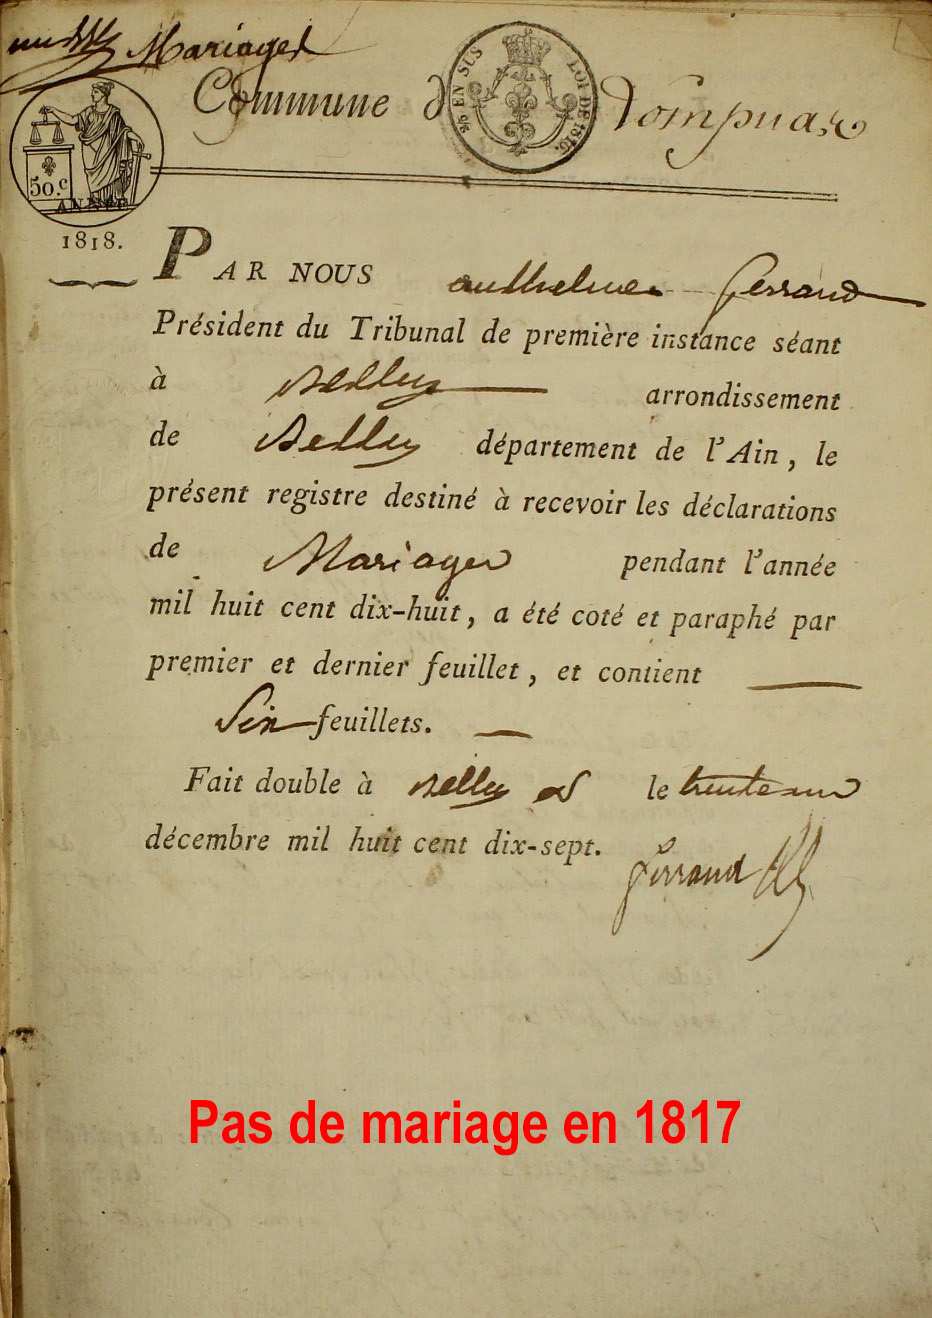 Mariages
Commune de Pompuas
EN SUS
LOI DE 1816.
50.c
1818.
PAR NOUS anthelme ferrand
Président du Tribunal de première instance séant
à Belley arrondissement
de Belley département de l'Ain, le
présent registre destiné à recevoir les déclarations
de Mariages pendant l'année
mil huit cent dix-huit, a été coté et paraphé par
premier et dernier feuillet, et contient
Six feuillets.
Fait double à Belley le trente un
décembre mil huit cent dix-sept.
ferrand
Pas de mariage en 1817